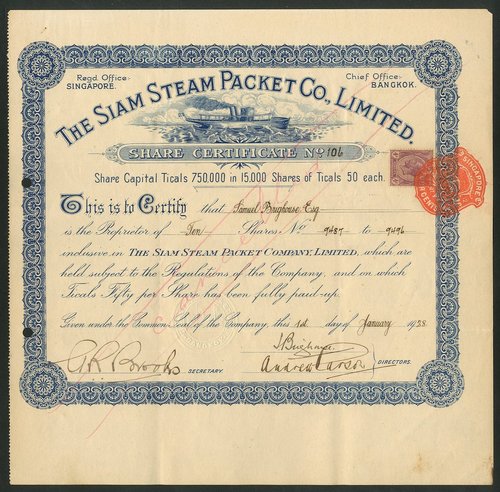 Regd. Office:
SINGAPORE.
Chief Office:
BANGKOK.
THE SIAM STEAM PACKET CO., LIMITED.
SHARE CERTIFICATE No 106
Share Capital Ticals 750,000 in 15,000 Shares of Ticals 50 each.
This is to Certify that Samuel Brighouse Esq
is the Proprietor of Ten Shares No 9487 to 9496
inclusive in THE SIAM STEAM PACKET COMPANY, LIMITED, which are
held subject to the Regulations of the Company, and on which
Ticals Fifty per Share has been fully paid-up.
Given under the Common Seal of the Company this 1st day of January 1928
SECRETARY.
Andrew Carson
DIRECTORS.